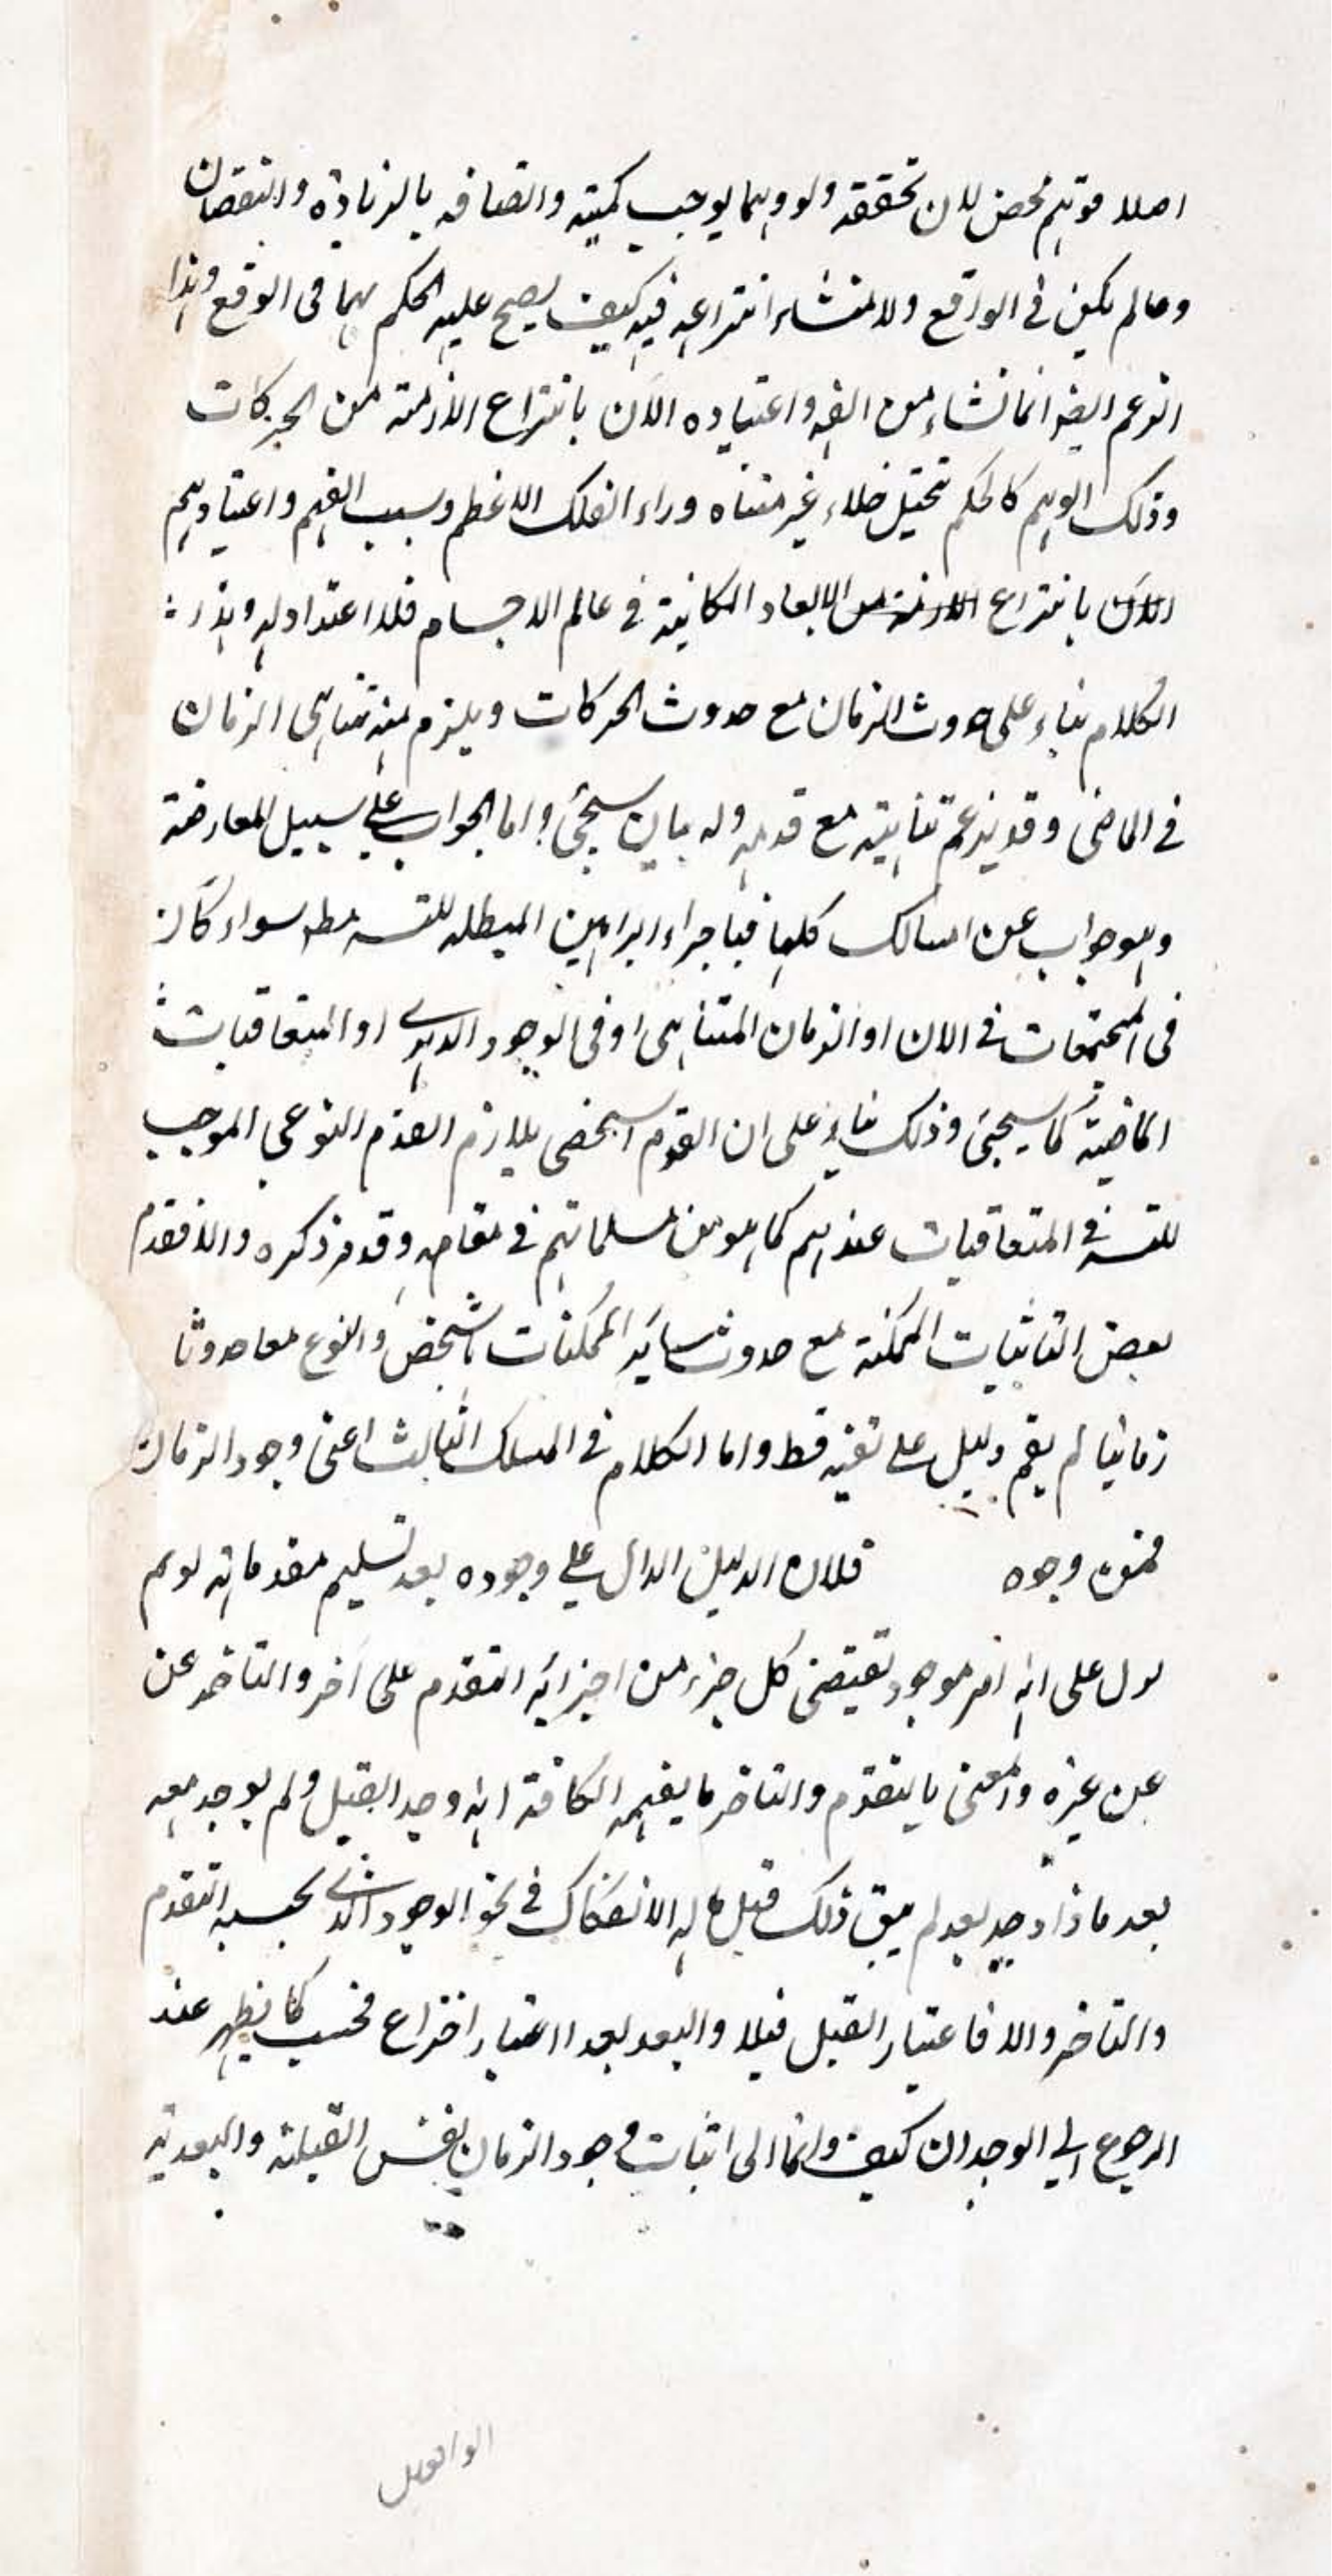 اصلا فوتهم محض لان تحققه ولو وهما يوجب كميته واتصافه بالزيادة والنقصان
ومالم يكن فى الواقع ولا لمنشاء انتزاعه فيه كيف يصح عليه الحكم بهما فى الوقع وهذا
الزعم ايضا انما نشاء من الفه واعتياده الآن بانتزاع الازمنة من الحركات
وذلك الوهم كالحكم بتخيل خلاء غير متناه وراء الفلك الاعظم وسبب الفهم واعتيادهم
الآن بانتزاع الازمنة من الابعاد المكانية فى عالم الاجسام فلا اعتداد له وهذا
الكلام بناء على حدوث الزمان مع حدوث الحركات ويلزم منه تناهى الزمان
فى الماضى وقد يزعم تناهيته مع قدمه وله بيان سيجئ واما الجواب على سبيل المعارضة
وهو جواب عن المسالك كلها فباجراء البراهين المبطله للتسه مطه سواء كان
فى المجتمعات فى الان او الزمان المتناهى او فى الوجود الدهرى او المتعاقبات
الماضية كما سيجئ وذلك بناء على ان القدم الشخصى يلازم القدم النوعى الموجب
للتسه فى المتعاقبات عندهم كما هو من مسلماتهم فى مقامه وقد مر ذكره والا فقدم
بعض الثابتات الممكنة مع حدوث سائر الممكنات بالشخص والنوع معا حدوثا
زمانيا لم يقم دليل على نفيه قط واما الكلام فى المسلك الثالث اعنى وجود الزمان
فمن وجوه فلان الدليل الدال على وجوده بعد تسليم مقدماته لو لم
يدل على انه امر موجود يقتضى كل جزء من اجزائه التقدم على آخر والتاخر عن
عن غيره والمعنى بالتقدم والتاخر ما يفهمه الكافة انه وجد القبل ولم يوجد معه
بعد فاذا وجد بعد لم يبق ذلك قبل له الانفكاك فى نحو الوجود الذى بحسبه التقدم
والتاخر والا فاعتبار القبل قبلا والبعد بعدا اعتبار اختراع فحسب كما يظهر عند
الرجوع الى الوجدان كيف وانما الى اثبات وجود الزمان بنفس القبلية والبعدية